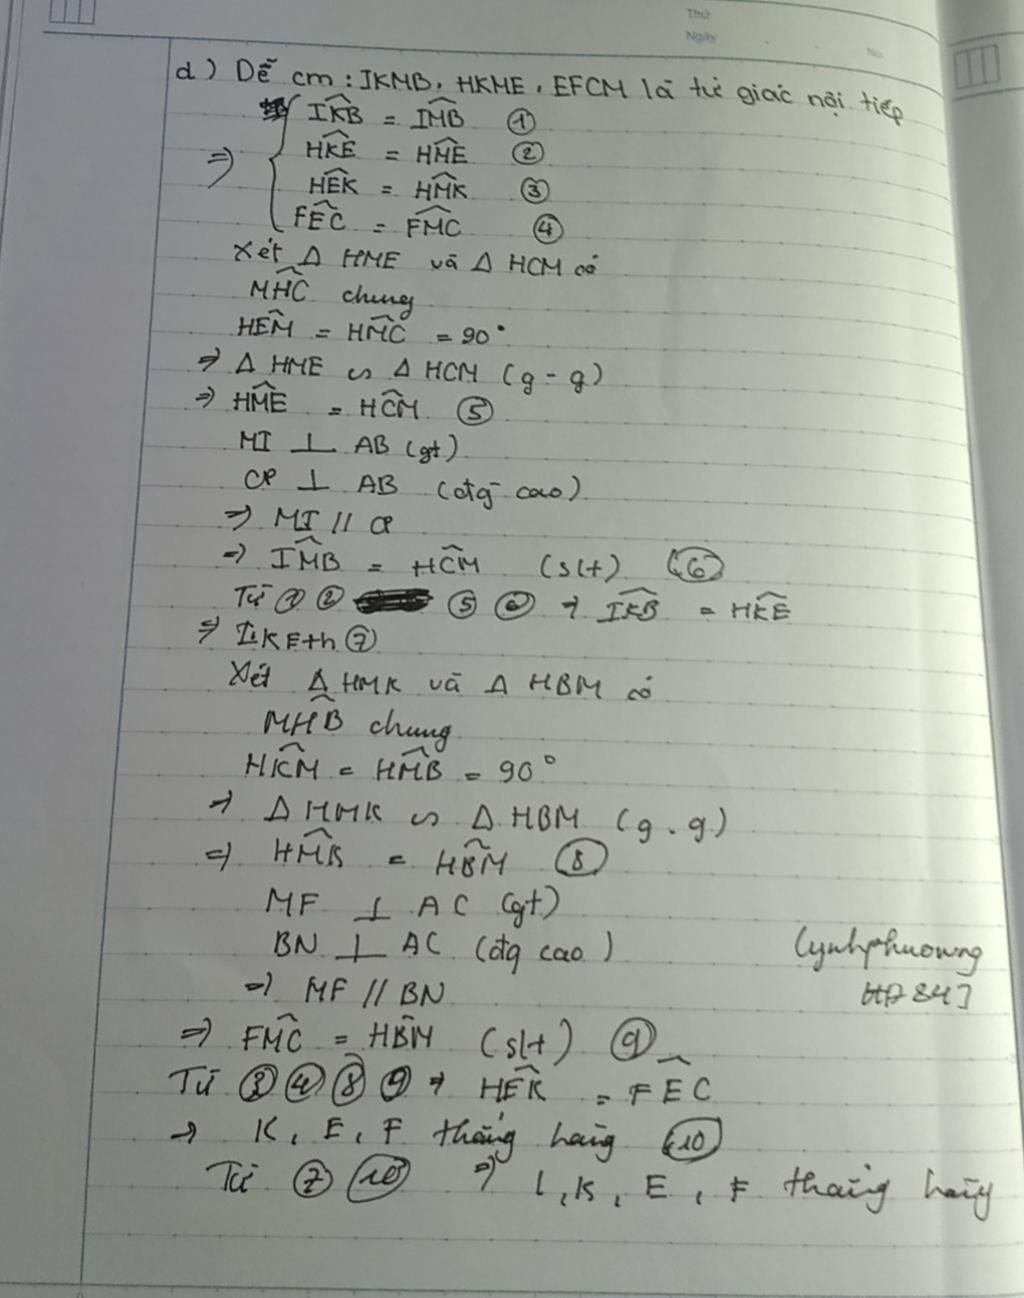 Thứ
Ngày
No
d) Dễ cm : IKMB, HKME, EFCM là tứ giác nội tiếp
⇒ { IK̂B = IM̂B ①
HK̂E = HM̂E ②
HÊK = HM̂K ③
FÊC = FM̂C ④
Xét Δ HME và Δ HCM có
MĤC chung
HÊM = HM̂C = 90°
⇒ Δ HME ∽ Δ HCM (g - g)
⇒ HM̂E = HĈM ⑤
MI ⊥ AB (gt)
CP ⊥ AB (đg cao)
⇒ MI // CP
⇒ IM̂B = HĈM (slt) ⑥
Từ ① ② ⑤ ⑥ ⇒ IK̂B = HK̂E
⇒ I,K,E th ⑦
Xét Δ HMK và Δ HBM có
MĤB chung
HK̂M = HM̂B = 90°
⇒ Δ HMK ∽ Δ HBM (g.g)
⇒ HM̂K = HB̂M ⑧
MF ⊥ AC (gt)
BN ⊥ AC (đg cao)
lynhphuowng
HP 847
⇒ MF // BN
⇒ FM̂C = HB̂M (slt) ⑨
Từ ③ ④ ⑧ ⑨ ⇒ HÊK = FÊC
⇒ K, E, F thẳng hàng ⑩
Từ ⑦ ⑩ ⇒ I, K, E, F thẳng hàng